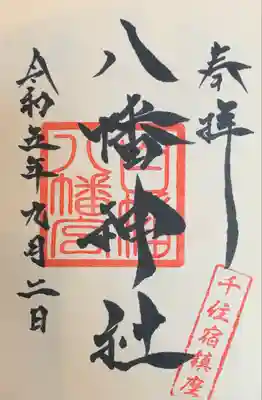 奉拝
千住宿鎮座
八幡神社
白幡
八幡宮
令和五年九月二日